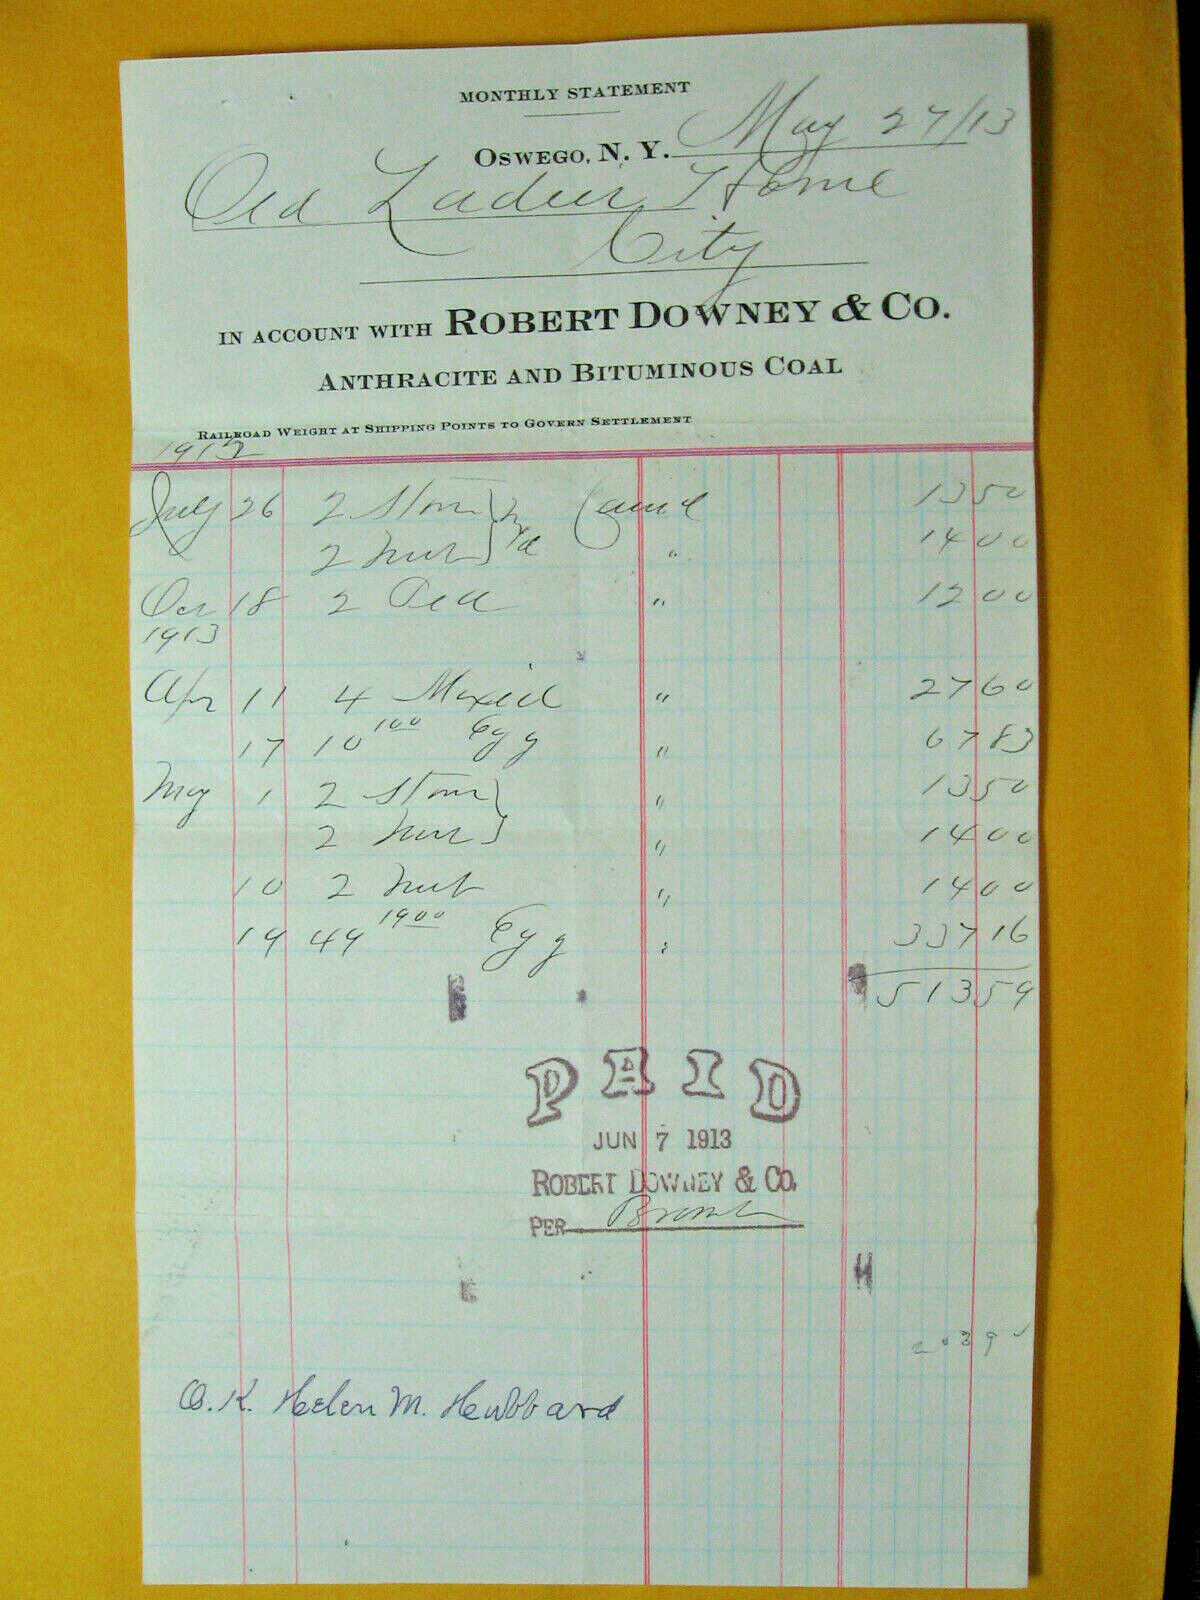 MONTHLY STATEMENT
OSWEGO, N. Y. May 27/13
Old Ladies Home
City
IN ACCOUNT WITH ROBERT DOWNEY & CO.
ANTHRACITE AND BITUMINOUS COAL
RAILROAD WEIGHT AT SHIPPING POINTS TO GOVERN SETTLEMENT
1912
July 26 2 Stove 1350
2 Nut " 1400
Oct 18 2 Pea " 1200
1913
Apr 11 4 Mixed " 2760
17 10 100 Egg " 6783
May 1 2 Stove " 1350
2 Nut " 1400
10 2 Nut " 1400
19 49 1900 Egg " 33716
51359
PAID
JUN 7 1913
ROBERT DOWNEY & CO.
PER
O.K. Helen M. Hubbard